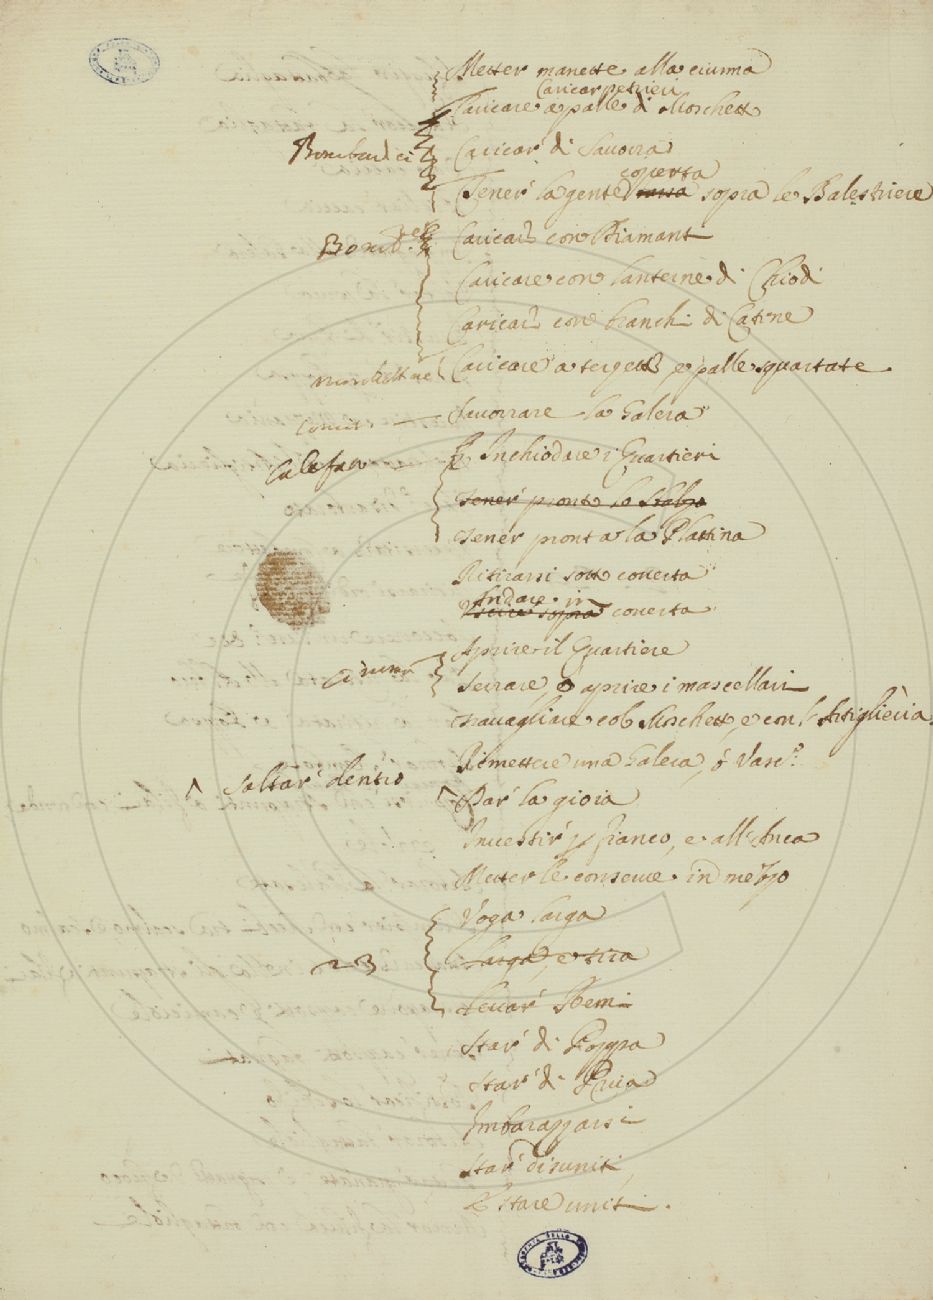 Metter manette alla ciurma
Caricar petrieri
Caricare a palle di Moschetto
Bombardieri
Caricar di Savorra
coperta
Tener la gente bassa sopra le Balestriere
Bomb.ri
Caricar con Diamanti
Caricare con lanterne di Chiodi
Caricar con branchi di Catene
Moschettrie
Caricare a sergetti, e palle squartate
Comit
Savorrare la Galera
Calafato
Inchiodare i Quartieri
Tener pronto lo Stelzo
Tener pronta la Plattina
Ritirarsi sotto coverta
Andare in
Uscire sopra coverta
Aprire il Quartiere
Ciurma
Serrare, o aprire i mascellari
travagliare col Moschetto, e con l'Artiglieria
Rimettere una Galera, ó Vasc.º
saltar dentro
Dar la gioia
Investir p fianco, e all'Anca
Metter le conserve in mezzo
Voga larga
Larga, e tira
23
Levar Remi
Star di Poppa
Star di Prua
Imbarazzarsi
Star disuniti
Stare uniti.